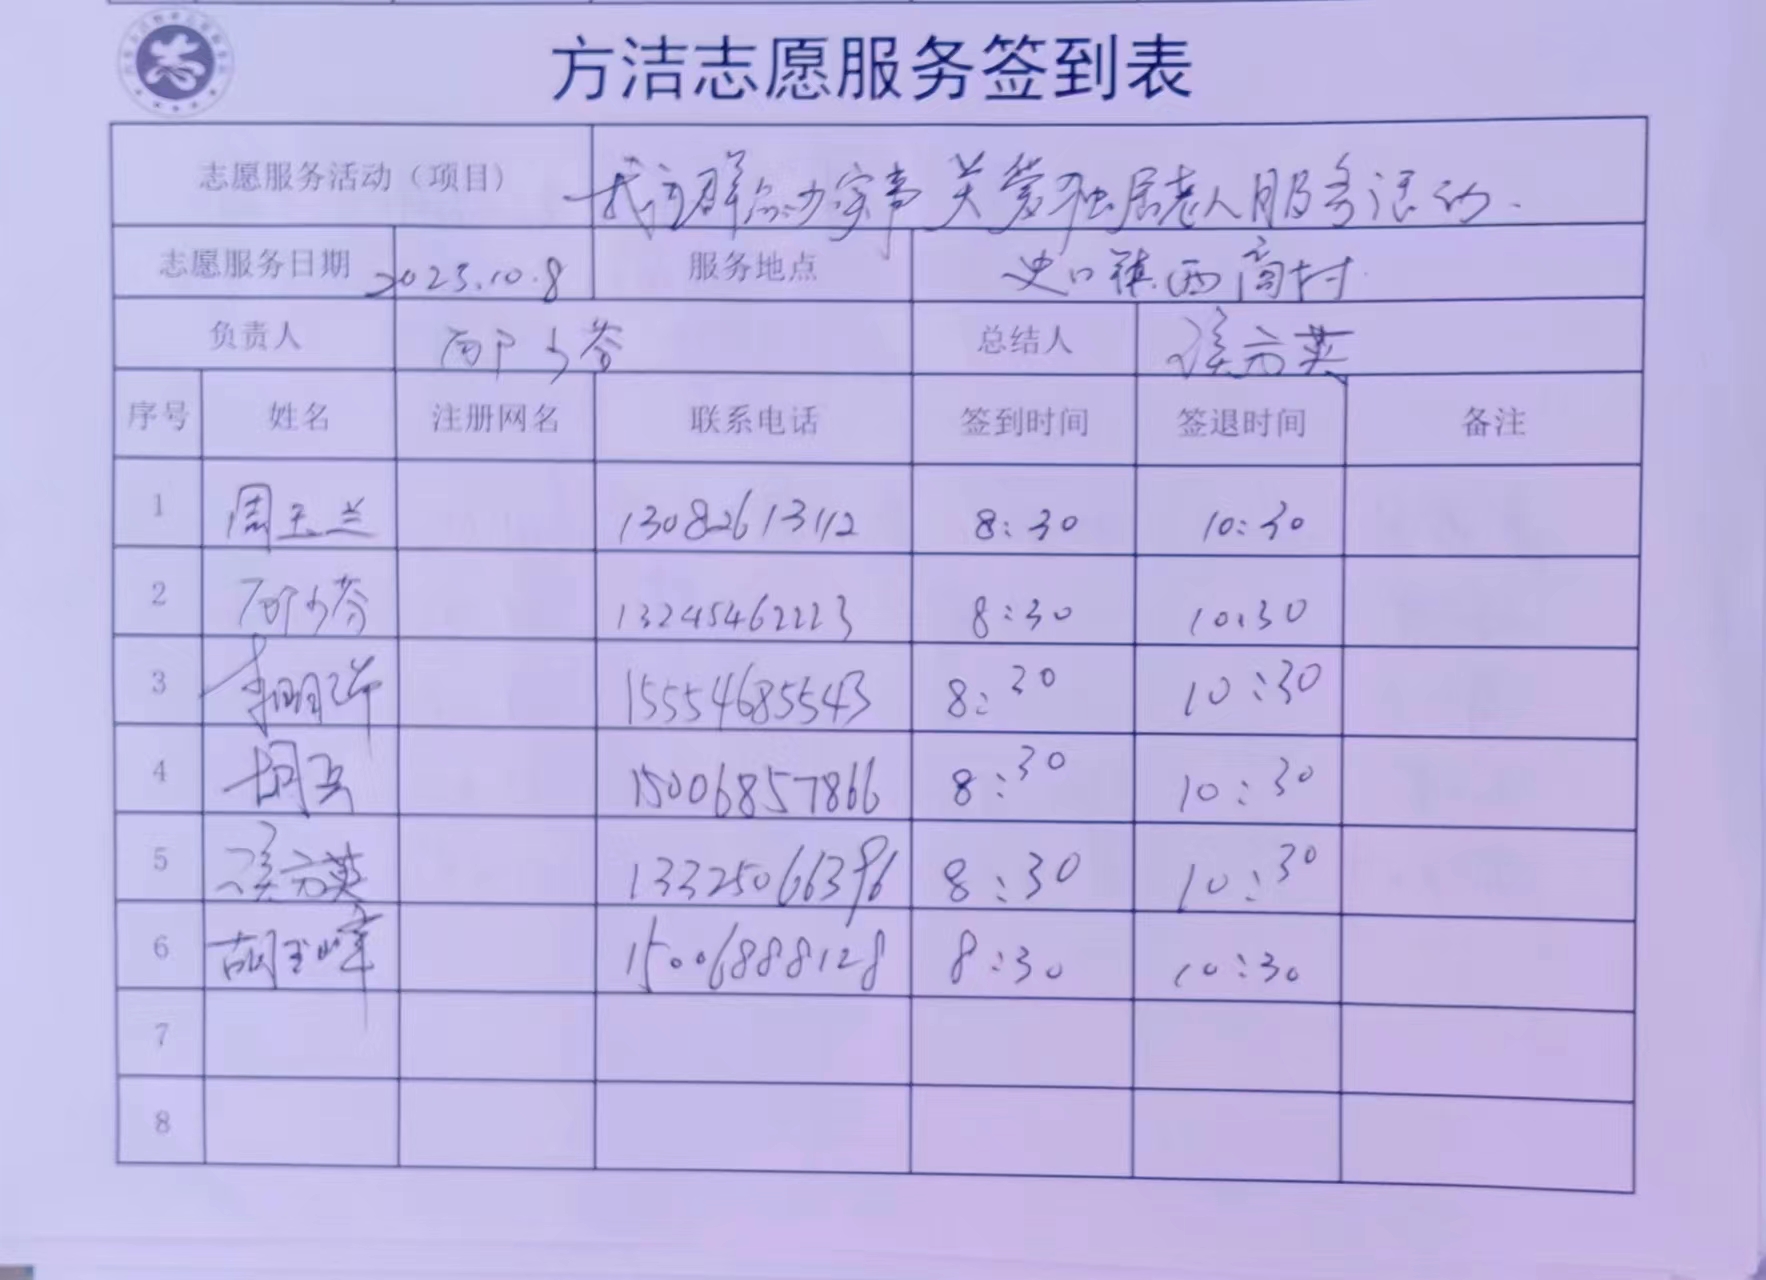 方洁志愿服务签到表
志愿服务活动（项目） 我为群众办实事 关爱独居老人服务活动.
志愿服务日期 2023.10.8 服务地点 史口镇西商村
负责人 总结人 侯方英
序号 姓名 注册网名 联系电话 签到时间 签退时间 备注
1 周玉兰 13082613112 8:30 10:30
2 13245462223 8:30 10:30
3 李明 15554685543 8:30 10:30
4 胡兵 15006857866 8:30 10:30
5 侯方英 13325066396 8:30 10:30
6 胡玉峰 15006888128 8:30 10:30
7
8